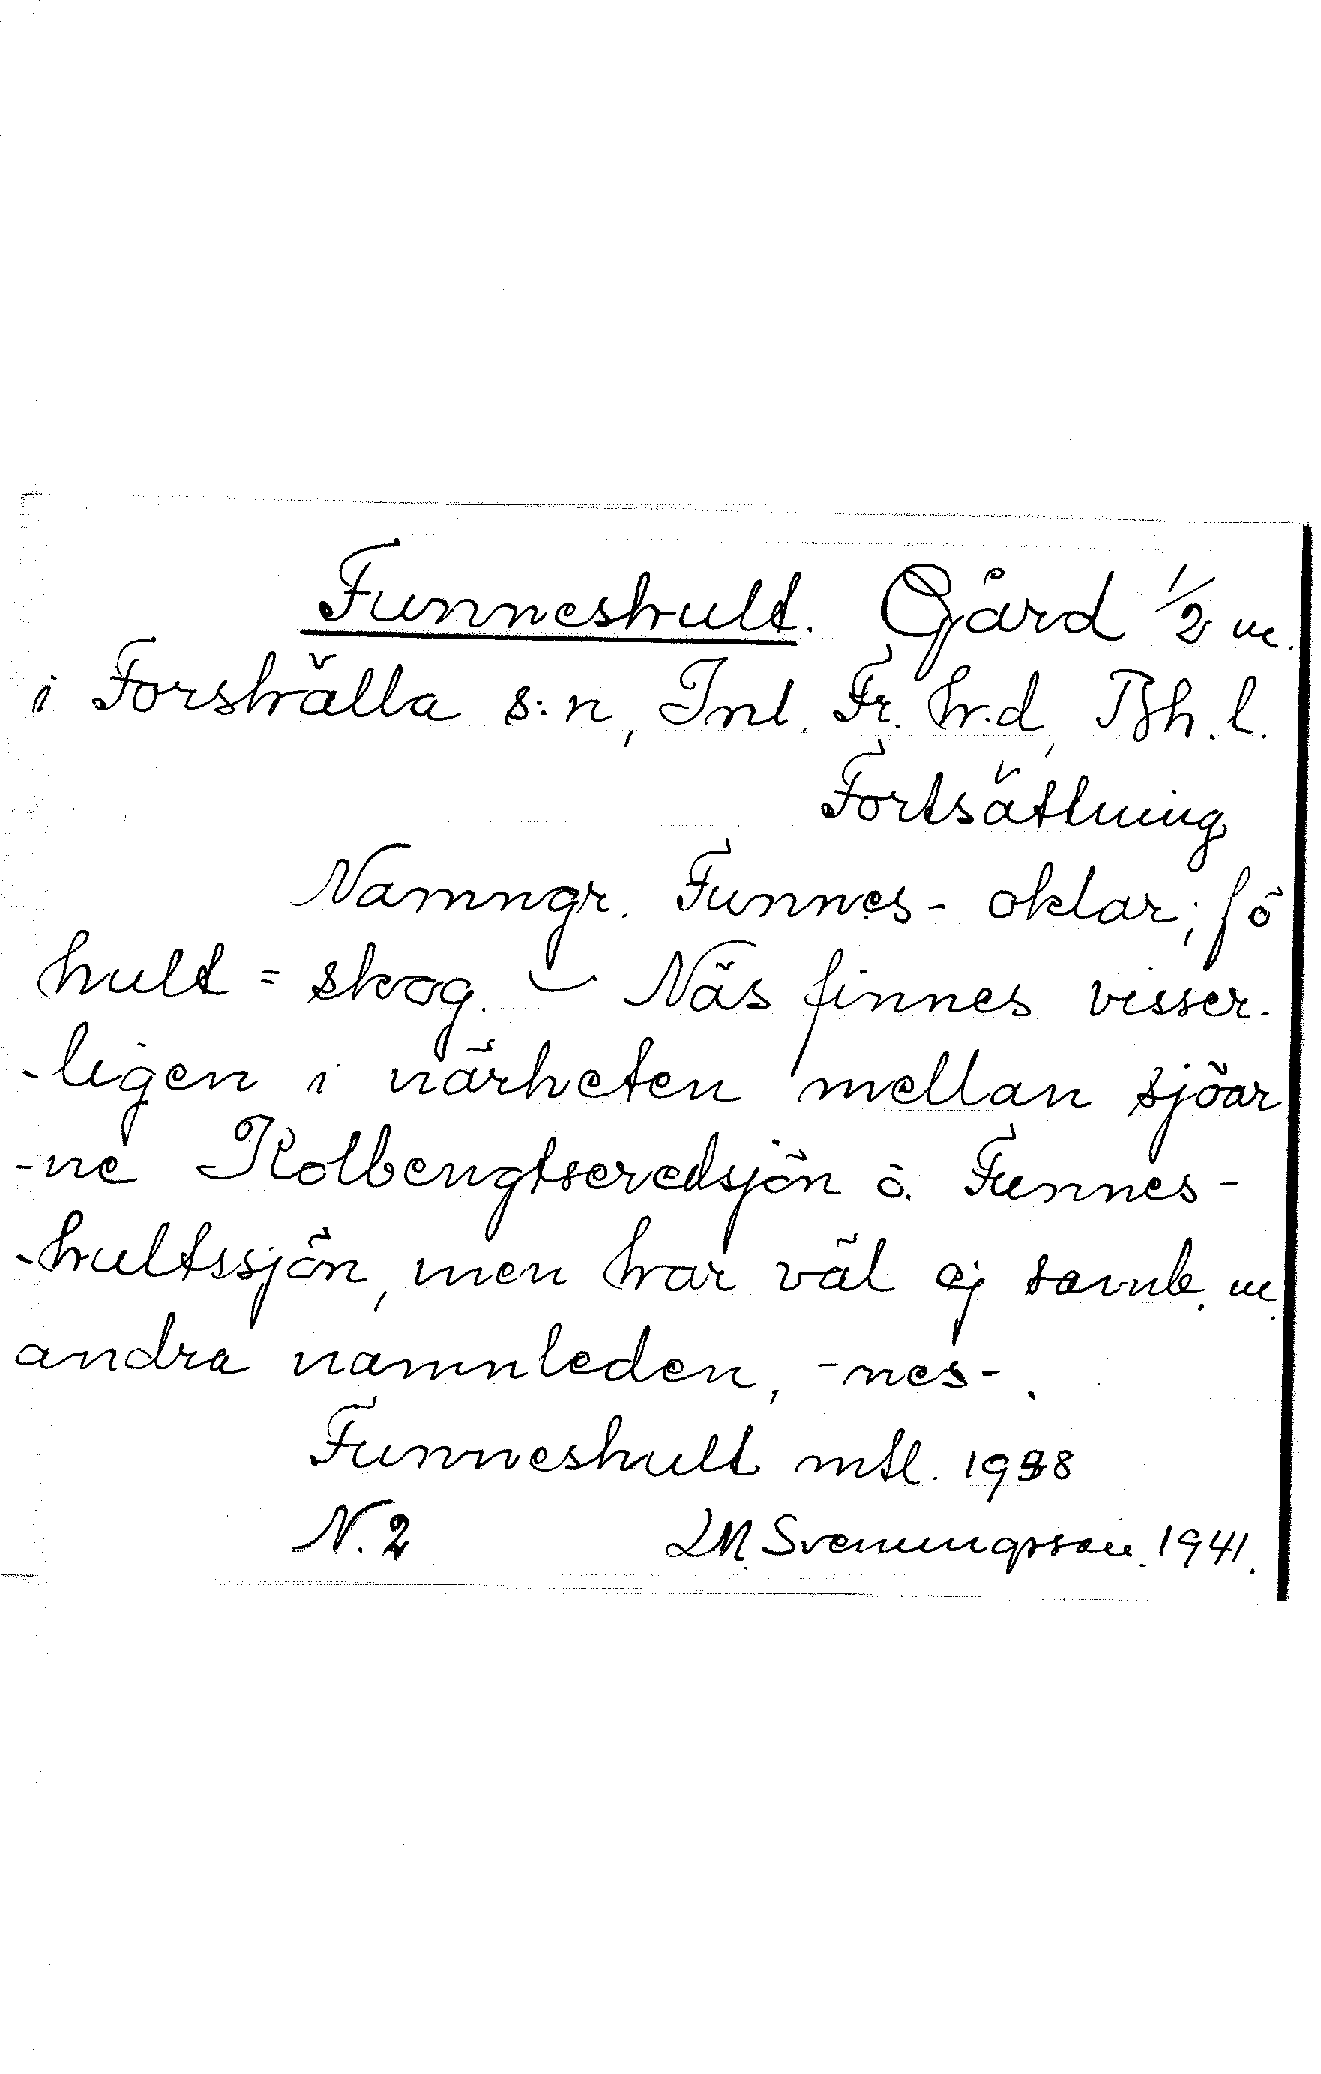 Funneshult. Gård 1/2 m.
i Forshälla s:n, Inl. Fr. h.d, Bh. l.
Fortsättning
Namngr. Funnes- oklar; fö
hult = skog. – Näs finnes visser-
-ligen i närheten mellan sjöar
-ne Kolbengtseredsjön o. Funnes-
-hultssjön, men har väl ej samb. m.
andra namnleden, -nes-.
Funneshult mtl. 1938
N. 2 LM Svenungsson. 1941.